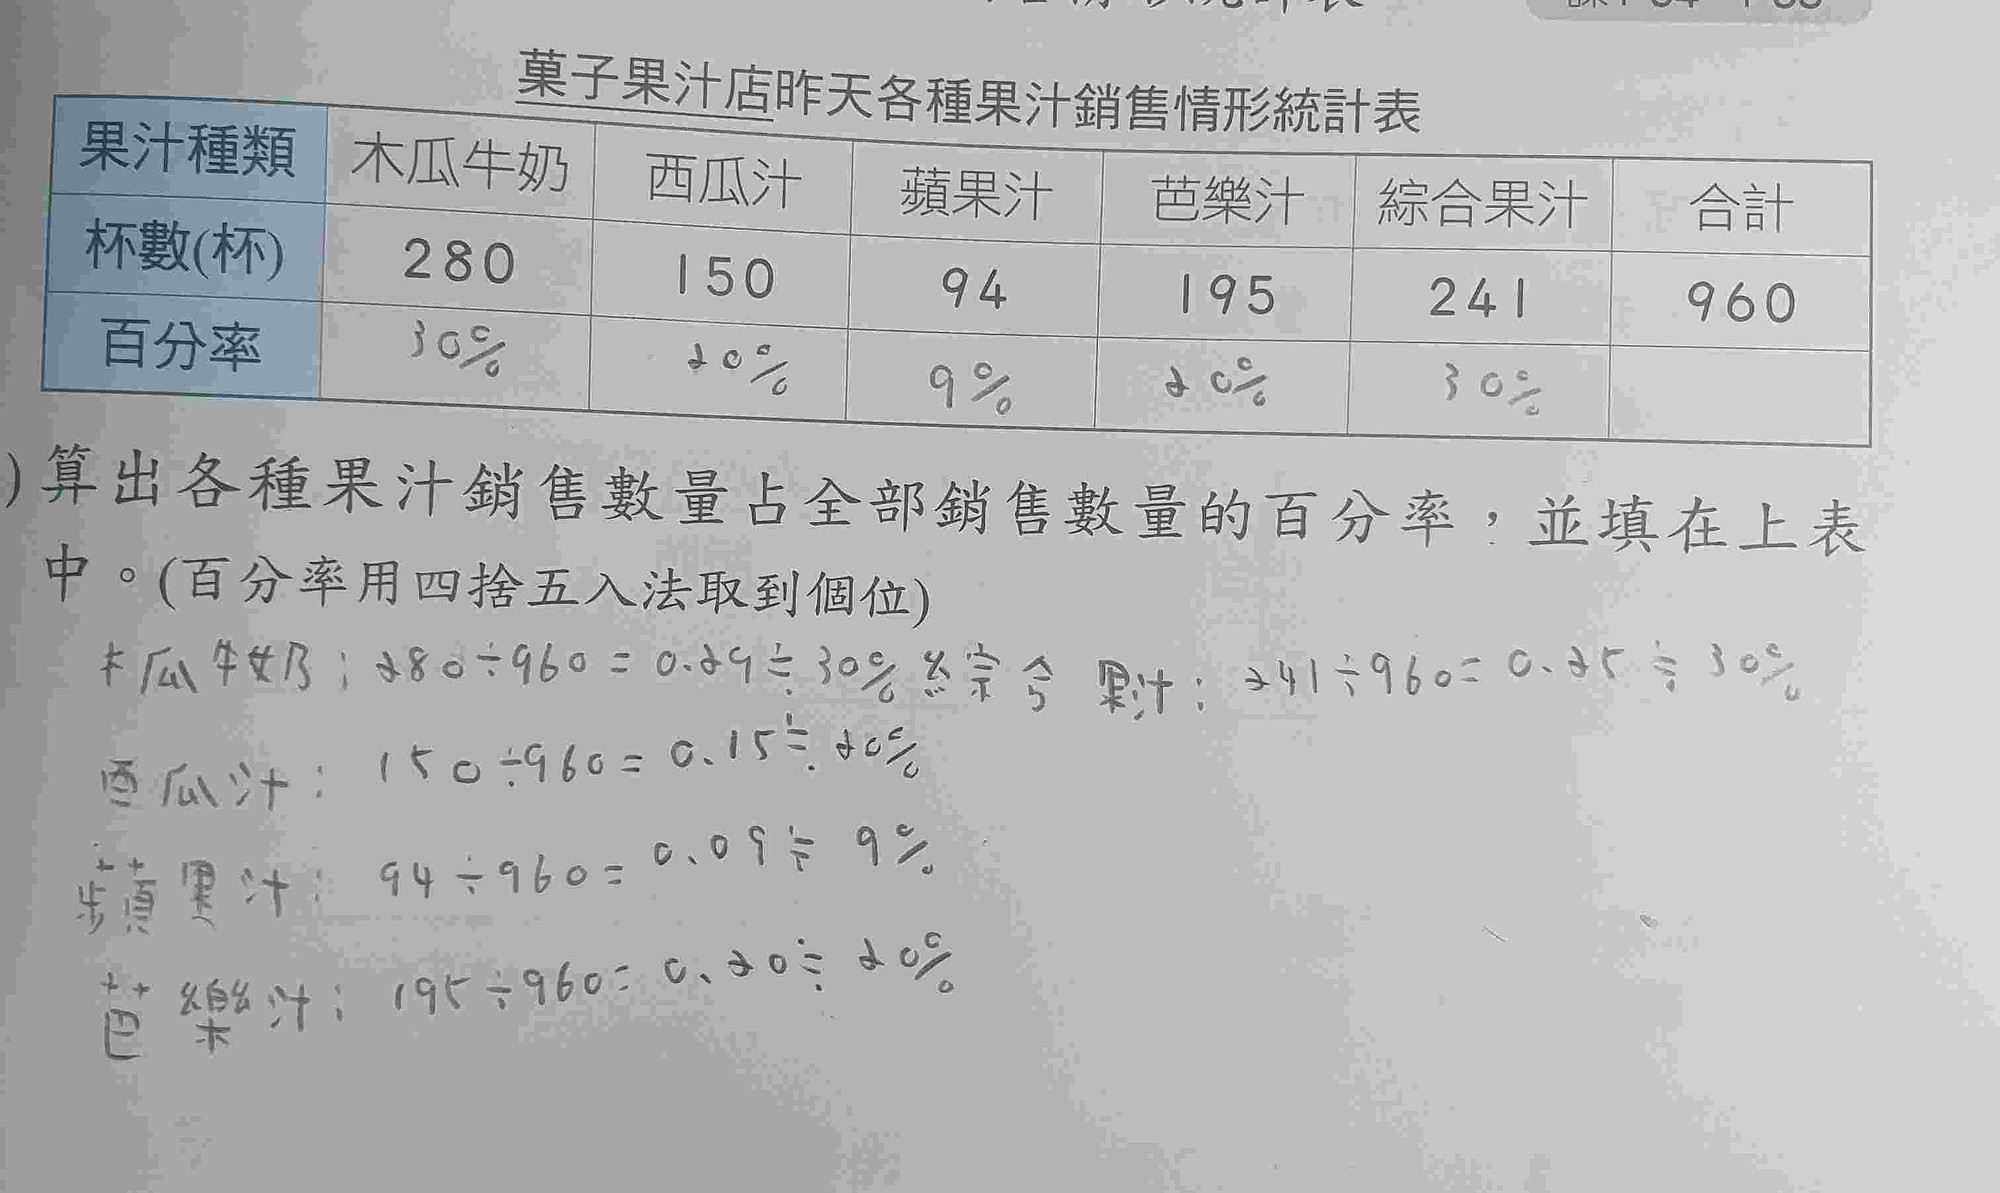 菓子果汁店昨天各種果汁銷售情形統計表
果汁種類 木瓜牛奶 西瓜汁 蘋果汁 芭樂汁 綜合果汁 合計
杯數(杯) 280 150 94 195 241 960
百分率 30% 20% 9% 20% 30%
)算出各種果汁銷售數量占全部銷售數量的百分率，並填在上表
中。(百分率用四捨五入法取到個位)
木瓜牛奶：280÷960=0.29≒30% 綜合果汁：241÷960=0.25≒30%
西瓜汁：150÷960=0.15≒20%
蘋果汁：94÷960=0.09≒9%
芭樂汁：195÷960=0.20≒20%